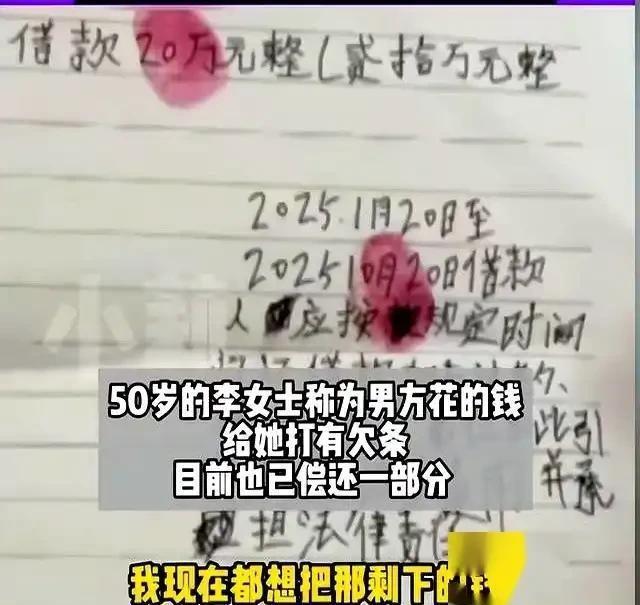 借款20万元整(贰拾万元整
2025.1月20日至
202510月20日借款
人应按规定时间
小莉
50岁的李女士称为男方花的钱
给她打有欠条
此引
目前也已偿还一部分
并承
担法律责任
我现在都想把那剩下的钱